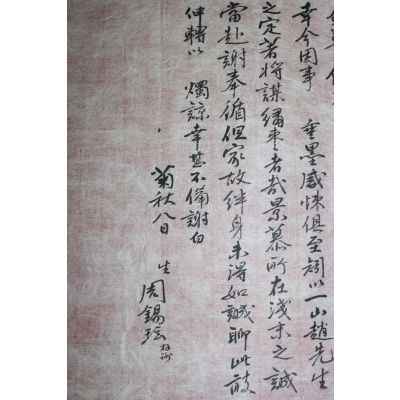 幸今因事 垂墨感悚俱至詢以一山趙先生
之定著將謀繡棗者哉景慕所在淺末之誠
當赴謝奉循但家故絆身未得如誠聊此敢
伸轉以 燭諒幸甚不備謝白
菊秋八日 生 周錫 拜謝